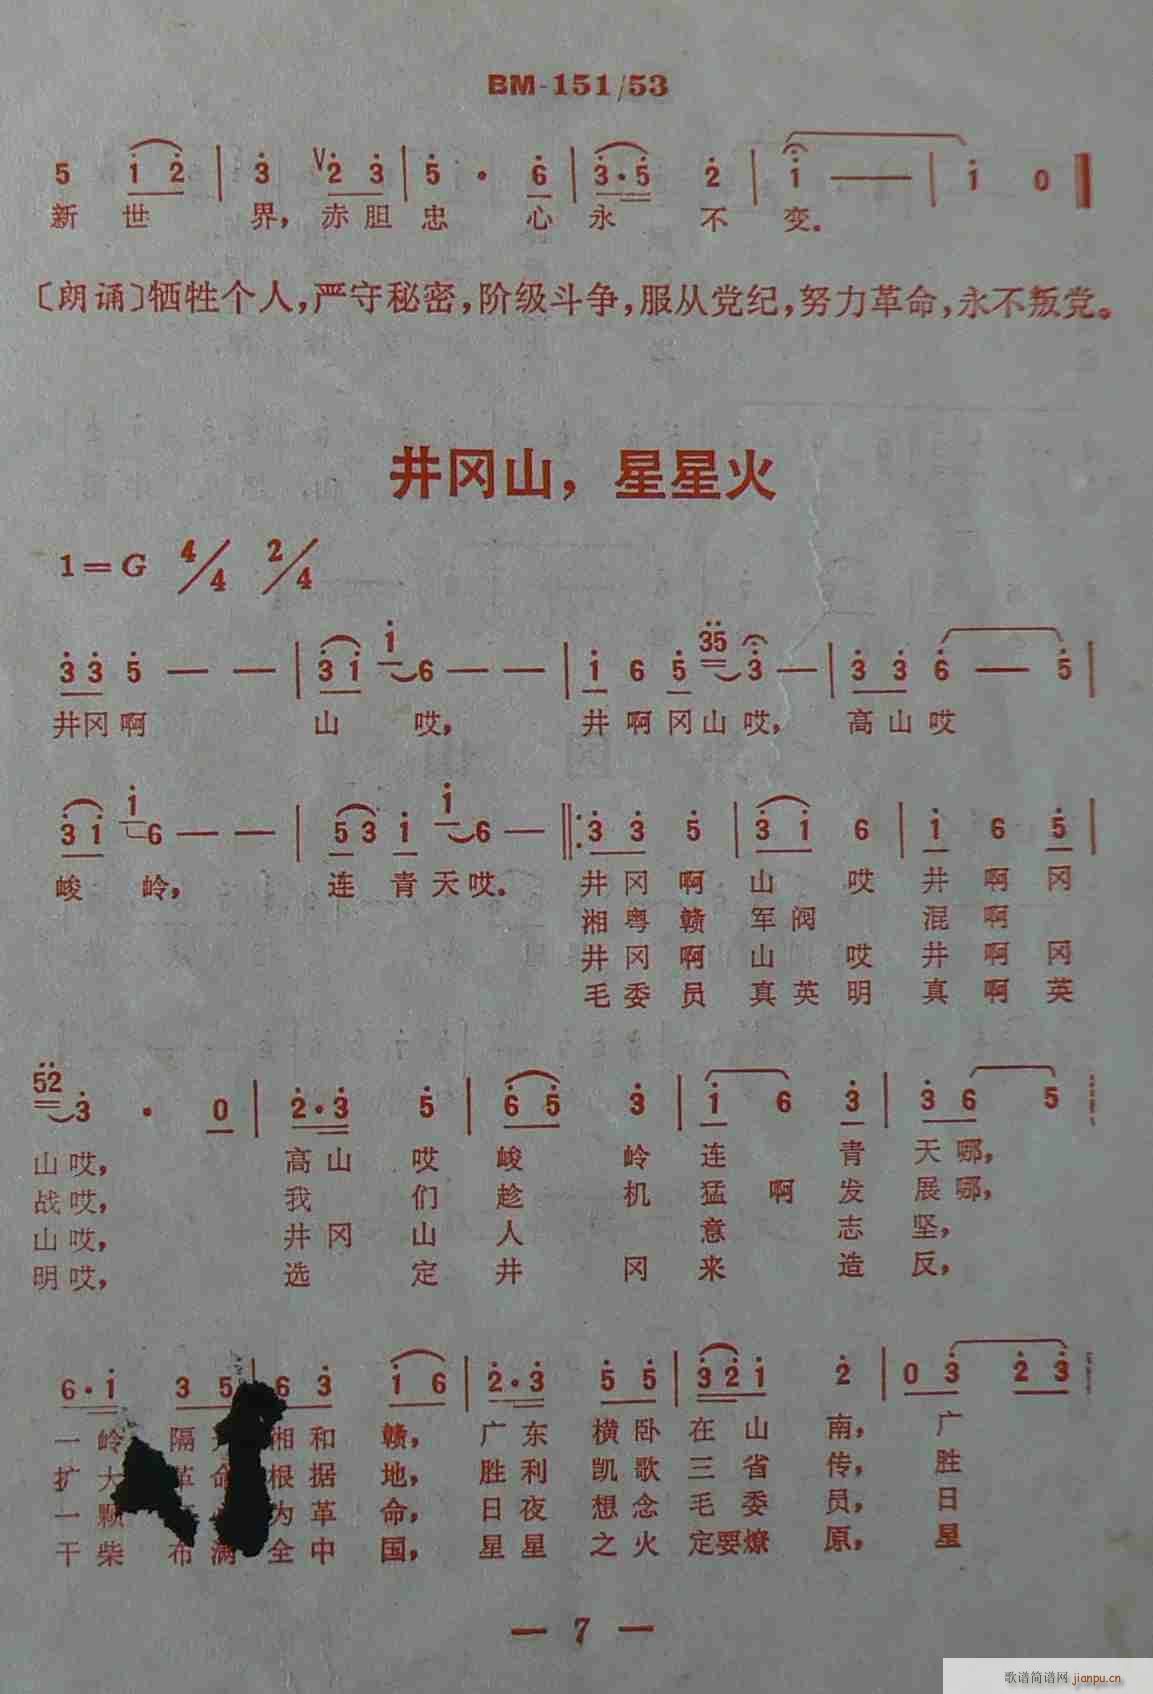 BM-151/53
5 1 2 | 3 V 2 3 | 5 · 6 | 3·5 2 | 1 — | 1 0
新世界，赤胆忠心永不变。
〔朗诵〕牺牲个人，严守秘密，阶级斗争，服从党纪，努力革命，永不叛党。
井冈山，星星火
1=G 4/4 2/4
3 3 5 — — | 3 1 1 6 — — | 1 6 5 35 3 — | 3 3 6 — 5 |
井冈啊山哎，井啊冈山哎，高山哎
3 1 1 6 — — | 5 3 1 1 6 — ‖: 3 3 5 | 3 1 6 | 1 6 5 |
峻岭，连青天哎。井冈啊山哎井啊冈
湘粤赣军阀混啊
井冈啊山哎井啊冈
毛委员真英明真啊英
52 3 · 0 | 2·3 5 | 6 5 3 | 1 6 3 | 3 6 5
山哎，高山哎峻岭连青天哪，
战哎，我们趁机猛啊发展哪，
山哎，井冈山人意志坚，
明哎，选定井冈来造反，
6·1 3 5 | 6 3 1 6 | 2·3 5 5 | 3 2 1 2 | 0 3 2 3
一岭隔湘和赣，广东横卧在山南，广
扩大革命根据地，胜利凯歌三省传，胜
一颗为革命，日夜想念毛委员，日
干柴布满全中国，星星之火定要燎原，星
— 7 —
歌谱简谱网 jianpu.cn